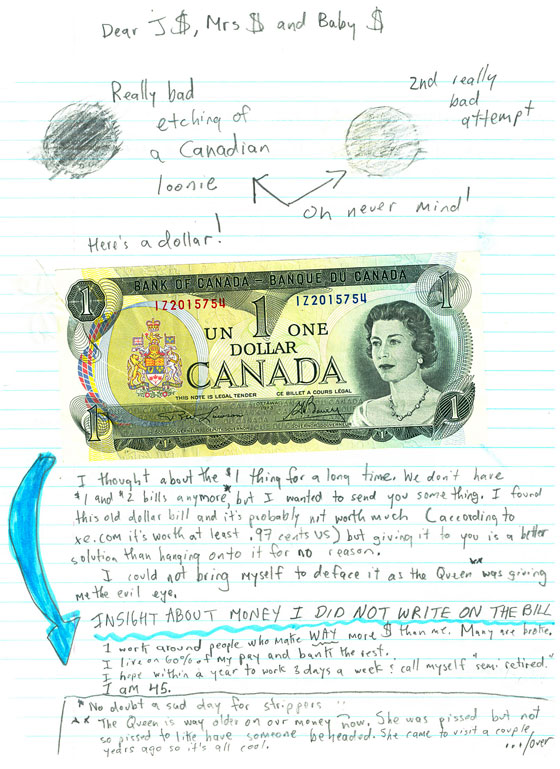 Dear J $, Mrs $ and Baby $
Really bad
etching of
a Canadian
loonie
2nd really
bad
attempt
Oh never mind!
Here's a dollar!
BANK OF CANADA – BANQUE DU CANADA
1 1
IZ2015754 IZ2015754
UN 1 ONE
DOLLAR
CANADA
THIS NOTE IS LEGAL TENDER CE BILLET A COURS LÉGAL
1 1
I thought about the $1 thing for a long time. We don't have
$1 and $2 bills anymore*, but I wanted to send you something. I found
this old dollar bill and it's probably not worth much (according to
xe.com it's worth at least .97 cents US) but giving it to you is a better
solution than hanging onto it for no reason.
I could not bring myself to deface it as the Queen** was giving
me the evil eye.
INSIGHT ABOUT MONEY I DID NOT WRITE ON THE BILL
I work around people who make WAY more $ than me. Many are broke.
I live on 60% of my pay and bank the rest.
I hope within a year to work 3 days a week & call myself "semi retired."
I am 45.
* No doubt a sad day for strippers
** The Queen is way older on our money now. She was pissed but not
so pissed to like have someone beheaded. She came to visit a couple
years ago so it's all cool.
.../over